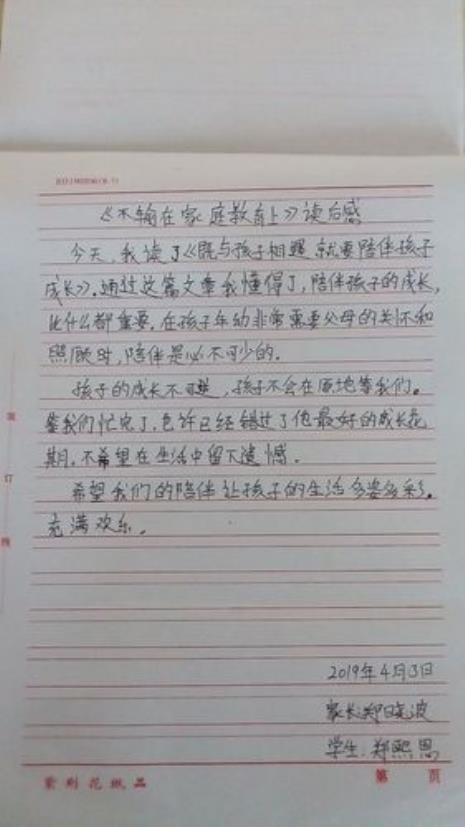 《不输在家庭教育上》读后感
今天,我读了《既与孩子相遇 就要陪伴孩子
成长》.通过这篇文章我懂得了,陪伴孩子的成长,
比什么都重要.在孩子年幼非常需要父母的关怀和
照顾时,陪伴是必不可少的.
孩子的成长不可逆,孩子不会在原地等我们。
等我们忙完了,也许已经错过了他最好的成长花
期.不希望在生活中留下遗憾.
希望我们的陪伴让孩子的生活多姿多彩.
充满欢乐.
2019年4月3日
家长:郑晓波
学生:郑熙恩
装
订
线
紫荆花纸品
第 页